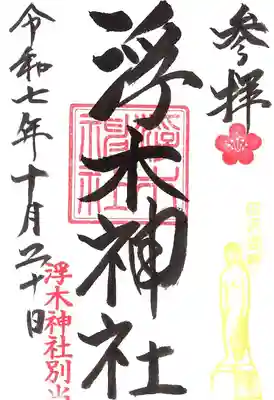 参拝
浮木神社
令和七年十月二十日
浮木神社別当